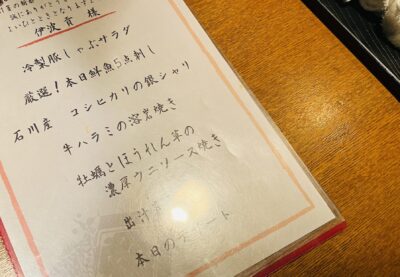 伊波 育 様
冷製豚しゃぶサラダ
厳選！本日鮮魚5点刺し
石川産 コシヒカリの銀シャリ
牛ハラミの溶岩焼き
牡蠣とほうれん草の
濃厚ウニソース焼き
出汁
本日のデザート